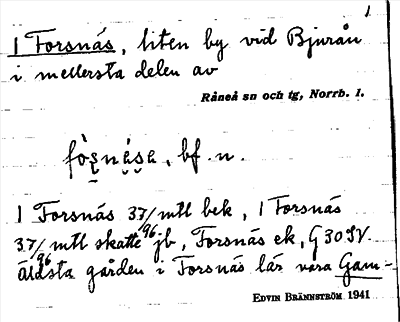 1
1 Forsnäs, liten by vid Bjurån
i mellersta delen av
Råneå sn och tg, Norrb. l.
fò̀ʂnǻ́sa, bf. n.
1 Forsnäs 37/96 mtl bek, 1 Forsnäs
37/96 mtl skatte jb, Forsnäs ek, G 30 SV.
Äldsta gården i Forsnäs lär vara Gam-
EDVIN BRÄNNSTRÖM 1941